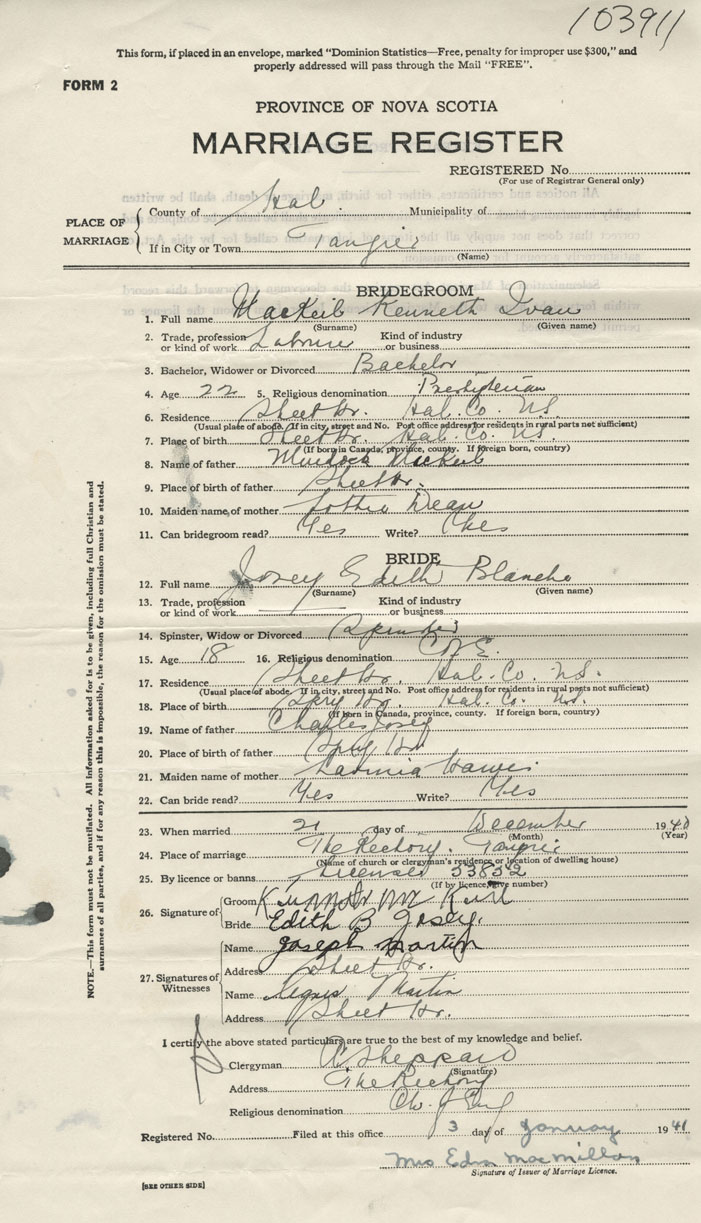 103911
This form, if placed in an envelope, marked "Dominion Statistics—Free, penalty for improper use $300," and
properly addressed will pass through the Mail "FREE".
FORM 2
PROVINCE OF NOVA SCOTIA
MARRIAGE REGISTER
REGISTERED No.
(For use of Registrar General only)
PLACE OF MARRIAGE
County of Hal. Municipality of
If in City or Town Tangier
(Name)
BRIDEGROOM
1. Full name MacKeil Kenneth Ivan
(Surname) (Given name)
2. Trade, profession or kind of work Laborer Kind of industry or business
3. Bachelor, Widower or Divorced Bachelor
4. Age 22 5. Religious denomination Presbyterian
6. Residence Sheet Hr. Hal. Co. N.S.
(Usual place of abode. If in city, street and No. Post office address for residents in rural parts not sufficient)
7. Place of birth Sheet Hr. Hal. Co. N.S.
(If born in Canada, province, county. If foreign born, country)
8. Name of father Murdock McKeil
9. Place of birth of father Sheet Hr.
10. Maiden name of mother Dean
11. Can bridegroom read? Yes Write? Yes
BRIDE
12. Full name Josey Edith Blanche
(Surname) (Given name)
13. Trade, profession or kind of work Kind of industry or business
14. Spinster, Widow or Divorced Spinster
15. Age 18 16. Religious denomination C of E.
17. Residence Sheet Hr. Hal. Co. N.S.
(Usual place of abode. If in city, street and No. Post office address for residents in rural parts not sufficient)
18. Place of birth Spry Hr. Hal. Co. N.S.
(If born in Canada, province, county. If foreign born, country)
19. Name of father Charles Josey
20. Place of birth of father Spry Hr
21. Maiden name of mother Lavinia
22. Can bride read? Yes Write? Yes
23. When married 21 day of December 1940
(Month) (Year)
24. Place of marriage The Rectory. Tangier
(Name of church or clergyman's residence or location of dwelling house)
25. By licence or banns License 53852
(If by licence, give number)
26. Signature of
Groom Kenneth Mc Keil
Bride Edith B Josey.
27. Signatures of Witnesses
Name Joseph Martin
Address Sheet Hr.
Name Martin
Address Sheet Hr.
I certify the above stated particulars are true to the best of my knowledge and belief.
Clergyman A. Sheppard
(Signature)
Address The Rectory
Religious denomination Ch. of Eng
Registered No. Filed at this office 3 day of January 1941
Mrs Edna MacMillan
Signature of Issuer of Marriage Licence.
[SEE OTHER SIDE]
NOTE.—This form must not be mutilated. All information asked for is to be given, including full Christian and
surnames of all parties, and if for any reason this is impossible, the reason for the omission must be stated.